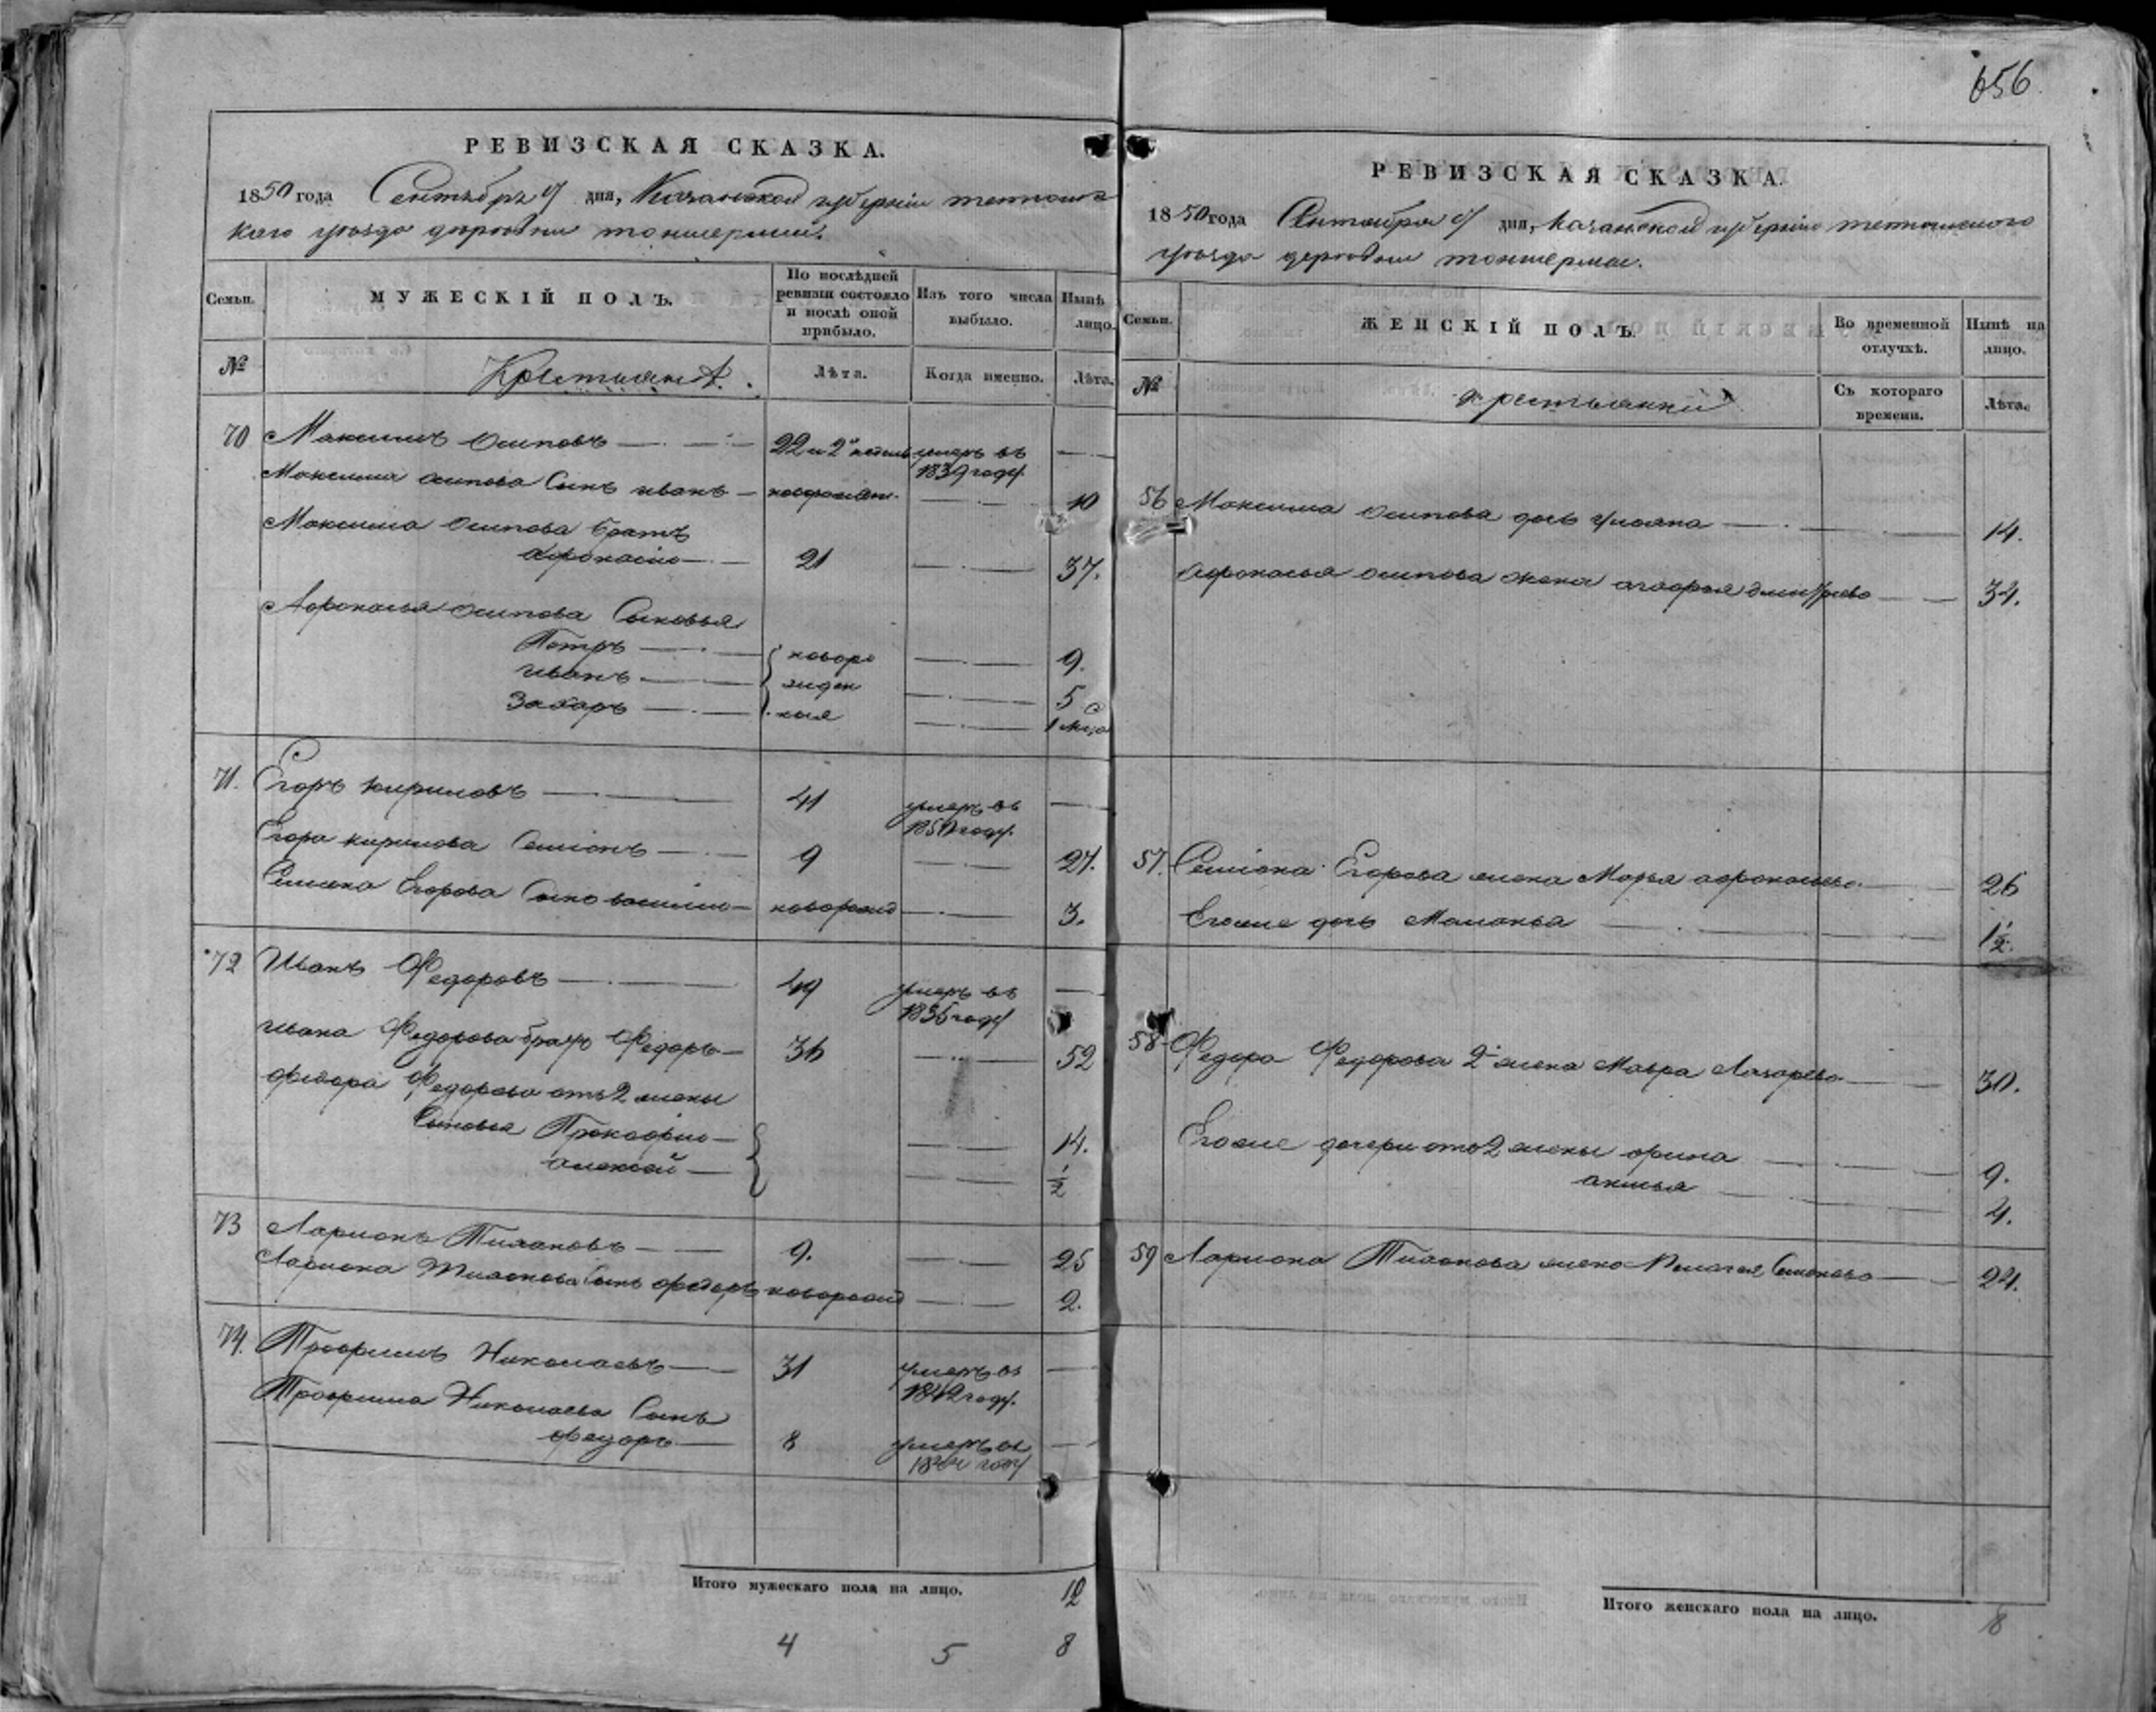 656
РЕВИЗСКАЯ СКАЗКА.
1850 года Сентября 9 дня, Казанской губерніи тетюшс
каго уѣзда деревни
Семьи.
МУЖЕСКІЙ ПОЛЪ.
По послѣдней ревизіи состояло и послѣ оной прибыло.
Изъ того числа выбыло.
Нынѣ на лицо.
№
Крестьянѣ
Лѣта.
Когда именно.
Лѣта.
70 Максимъ Осиповъ 22 и 2 умеръ въ 1839 году
Максима осипова Сынъ иванъ новорожден. 10
Максима Осипова братъ
Афонасій 21 37.
Афонасья осипова Сыновья
Петръ новоро 9.
иванъ жден 5
Захаръ ныя 1 мца
71. Егоръ кириловъ 41 умеръ въ 1850 году
Егора кирилова Семіонъ 9 27.
Семиона Егорова Сынъ василій новорожд 3.
72 Иванъ Федоровъ 49 умеръ въ 1835 году
ивана Федорова братъ Федоръ 36 52
федора Федорова отъ 2 жены
Сыновья Прокофий 14.
алексей 1/2
73 Ларионъ Тихановъ 9. 25
Лариона Тихонова Сынъ федоръ новорожд 2.
74. Трофимъ Николаевъ 31 умеръ въ 1842 году.
Трофима Николаева Сынъ
федоръ 8 умеръ въ году
Итого мужескаго пола на лицо. 12
4 5 8
РЕВИЗСКАЯ СКАЗКА.
1850 года Сентября 9 дня, Казанской губерніи тетюшского
уѣзда деревни
Семьи.
ЖЕНСКІЙ ПОЛЪ.
Во временной отлучкѣ.
Нынѣ на лицо.
№
крестьянки
Съ котораго времени.
Лѣта.
56 Максима осипова дочь ульяна 14.
афонасья осипова жена агафья дмитрева 34.
57. Семіона Егорова жена Марья афонасьева 26
Егоже дочь Маланья 1 1/2.
58 Федора Федорова 2я жена Мавра Лазарева 30.
Егоже дочери отъ 2 жены орина 9.
4.
59 Лариона Тихонова жена Пелагея Семенова 24.
Итого женскаго пола на лицо. 8